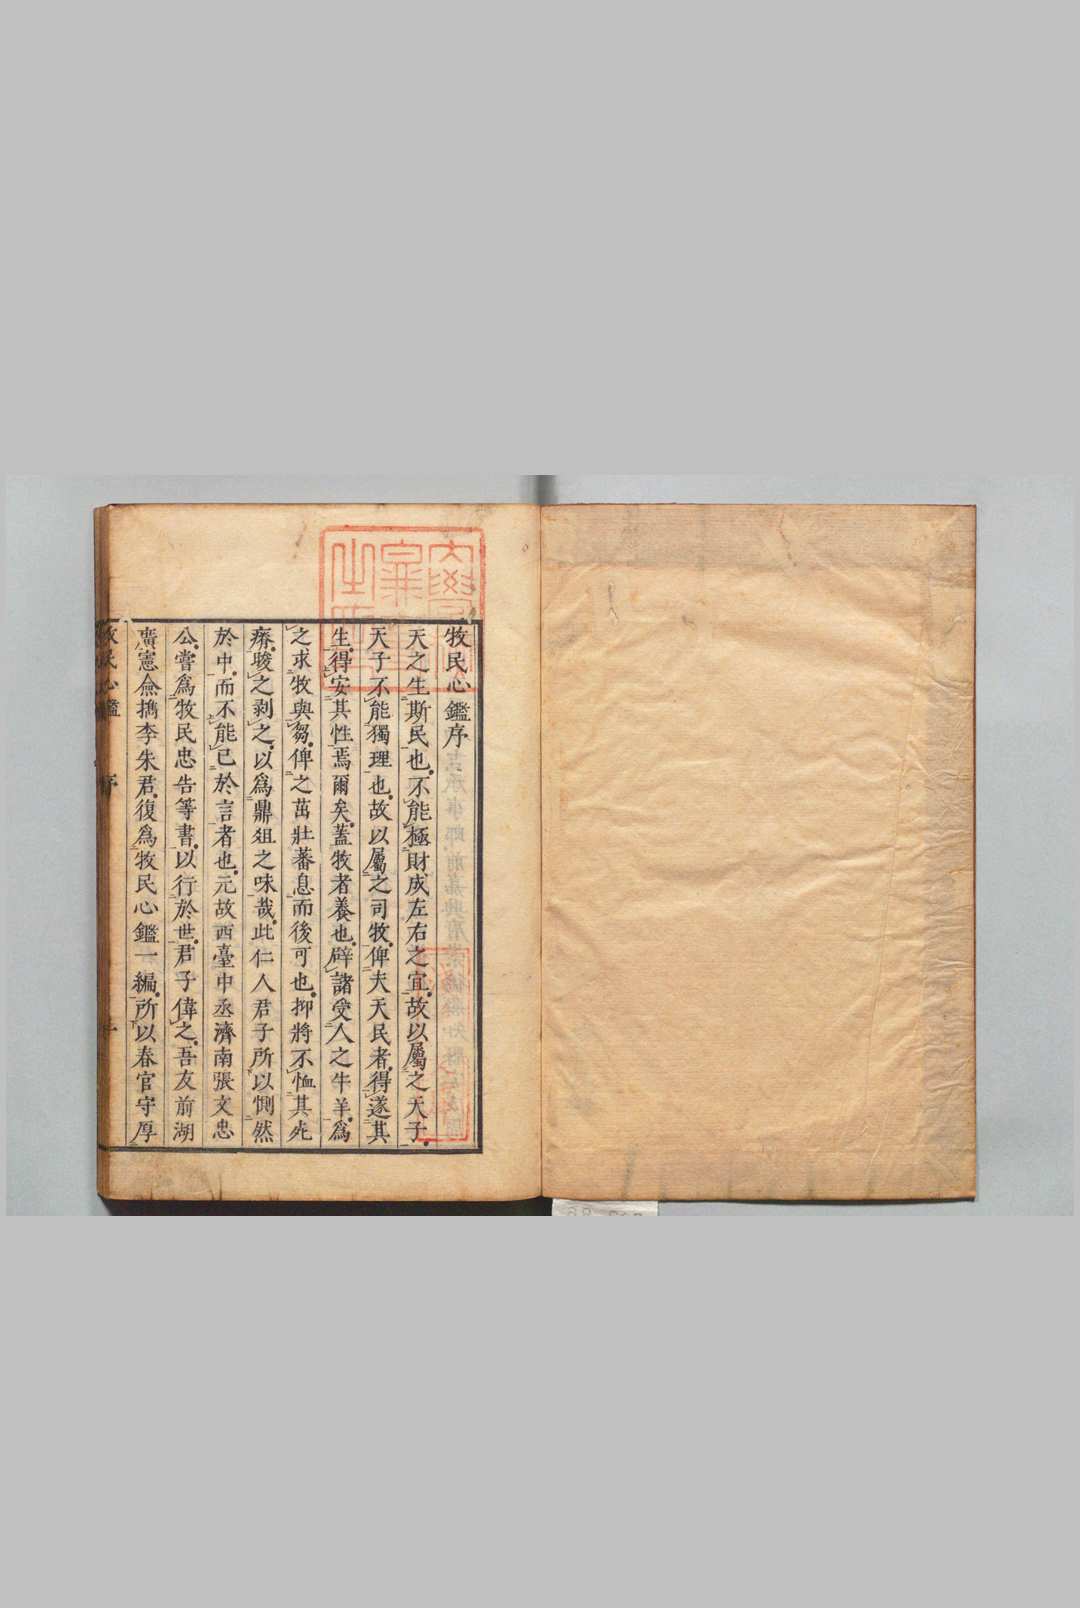 牧民心鑑序
天之生斯民也不能極財成左右之宜故以屬之天子
天子不能獨理也故以屬之司牧俾夫天民者得遂其
生得安其性焉爾矣蓋牧者養也辟諸受人之牛羊爲
之求牧與芻俾之茁壯蕃息而後可也抑將不恤其死
瘠朘之剥之以爲鼎俎之味哉此仁人君子所以惻然
於中而不能已於言者也元故西臺中丞濟南張文忠
公嘗爲牧民忠告等書以行於世君子偉之吾友前湖
廣憲僉檇李朱君復爲牧民心鑑一編所以春官守厚
牧民心鑑 序